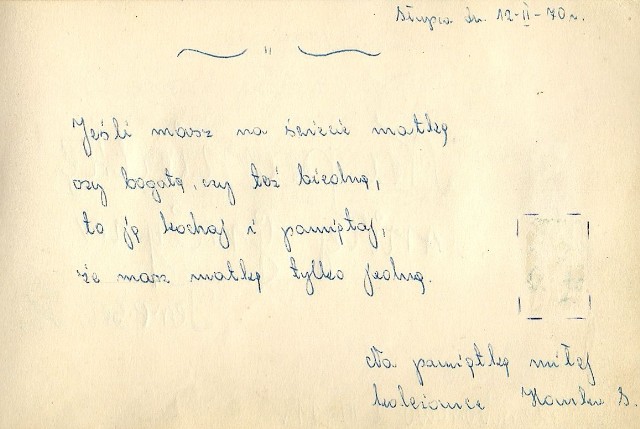 Słupia dn. 12-II-70r.
Jeśli masz na świecie matkę
czy bogatą, czy też biedną,
to ją kochaj i pamiętaj,
że masz matkę tylko jedną.
Na pamiątkę miłej
koleżance